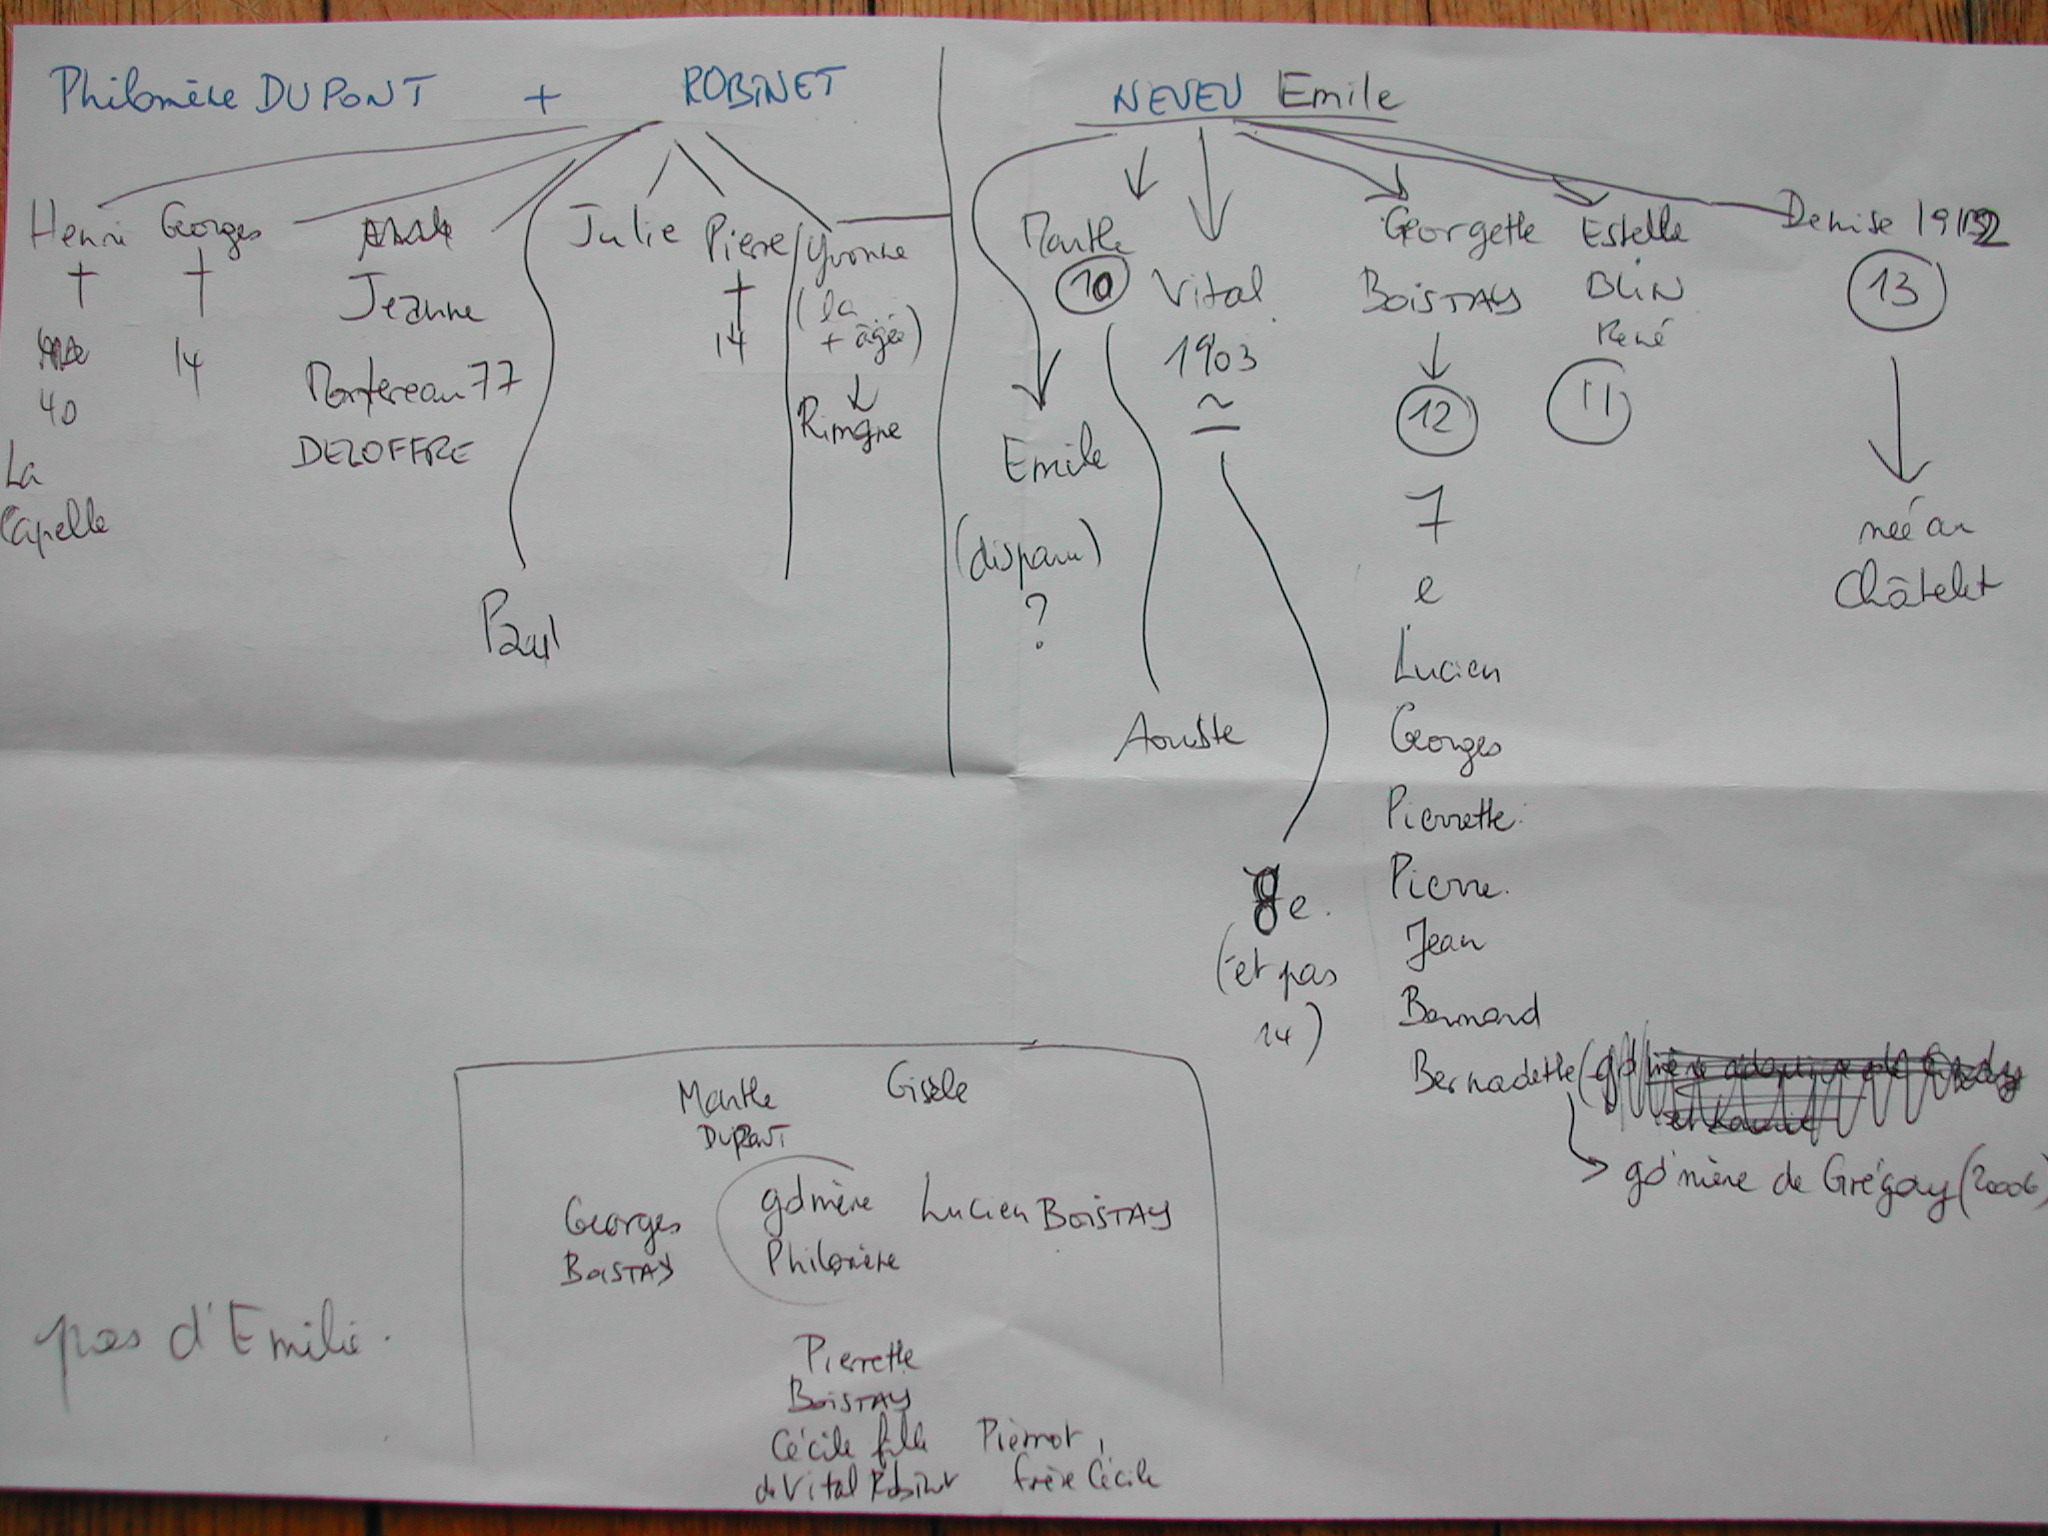 Philomène DUPONT + ROBINET
Henri
†
40
La
Capelle
Georges
†
14
Jeanne
Montereau 77
DEZOFFRE
Paul
Julie
Pierre
†
14
Yvonne
(la
+ âgée)
Rimogne
NEVEU Emile
Marthe
10
Aouste
Emile
(disparu)
?
Vital
1903
~
8 e.
(et pas
14)
Georgette
BOISTAY
12
7
e
Lucien
Georges
Pierrette
Pierre.
Jean
Bernard
Bernadette
gd'mère de Grégory (2006)
Estelle
BLIN
René
11
Denise 1912
13
née au
Châtelet
Marthe
DUPONT
Gisèle
Georges
BOISTAY
gdmère
Philomène
Lucien BOISTAY
Pierrette
BOISTAY
Cécile fille
de Vital Robinet
Pierrot,
frère Cécile
pas d'Emilie.